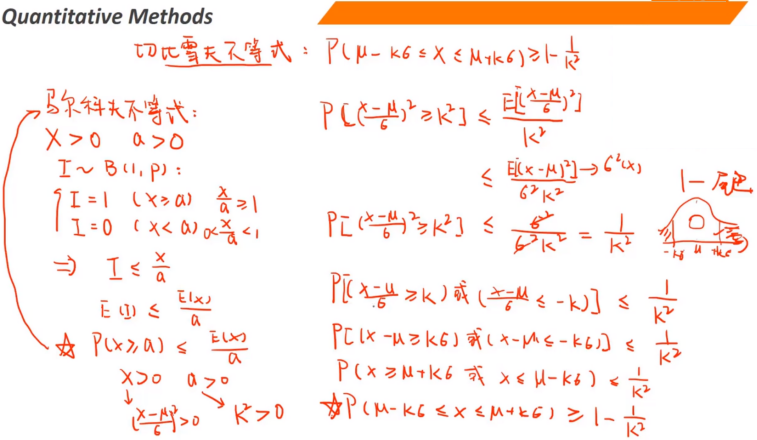 Quantitative Methods
切比雪夫不等式: P(μ-kσ ≤ X ≤ μ+kσ) ≥ 1-1/k²
马尔科夫不等式:
X>0 a>0
I ~ B(1,p):
I=1 (X≥a) X/a ≥1
I=0 (X<a) 0<X/a<1
⇒ I ≤ X/a
E(I) ≤ E(X)/a
☆ P(X≥a) ≤ E(X)/a
X>0 a>0
(X-μ/σ)²>0 k²>0
P[(X-μ/σ)² ≥ k²] ≤ E[(X-μ/σ)²]/k²
≤ E[(X-μ)²]/σ²k² → σ²(X)
P[(X-μ/σ)² ≥ k²] ≤ σ²/σ²k² = 1/k²
1-尾巴
-kσ μ +kσ
P[(X-μ/σ ≥ k) 或 (X-μ/σ ≤ -k)] ≤ 1/k²
P[(X-μ ≥ kσ) 或 (X-μ ≤ -kσ)] ≤ 1/k²
P(X ≥ μ+kσ 或 X ≤ μ-kσ) ≤ 1/k²
☆P(μ-kσ ≤ X ≤ μ+kσ) ≥ 1-1/k²